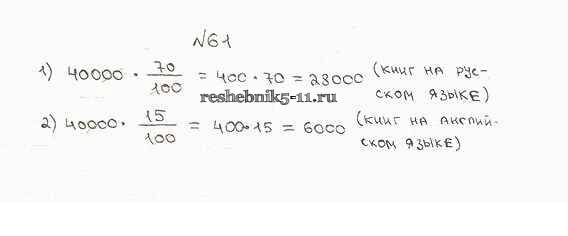 №61
1) 40000 · 70/100 = 400 · 70 = 28000 (книг на рус-
ском языке)
reshebnik5-11.ru
2) 40000 · 15/100 = 400·15 = 6000 (книг на англий-
ском языке)